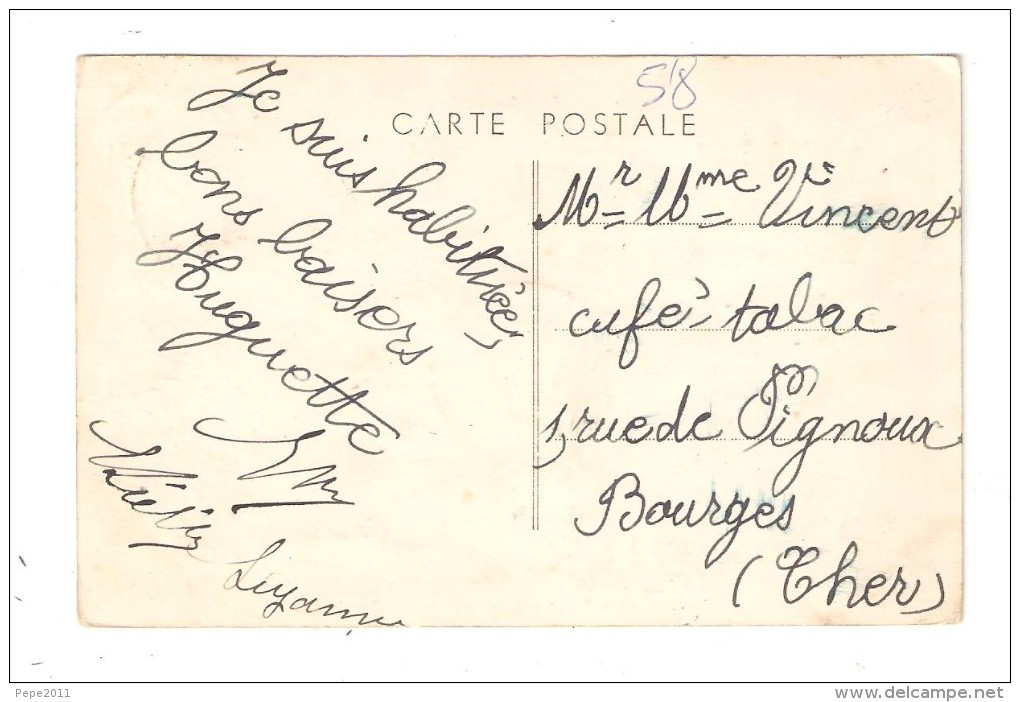 58
CARTE POSTALE
Je suis habituée
bons baisers
Huguette
Suzanne
Mr = Mme Vincent
café-tabac
1, rue de Pignoux
Bourges
(Cher)
Pepe2011
www.delcampe.net